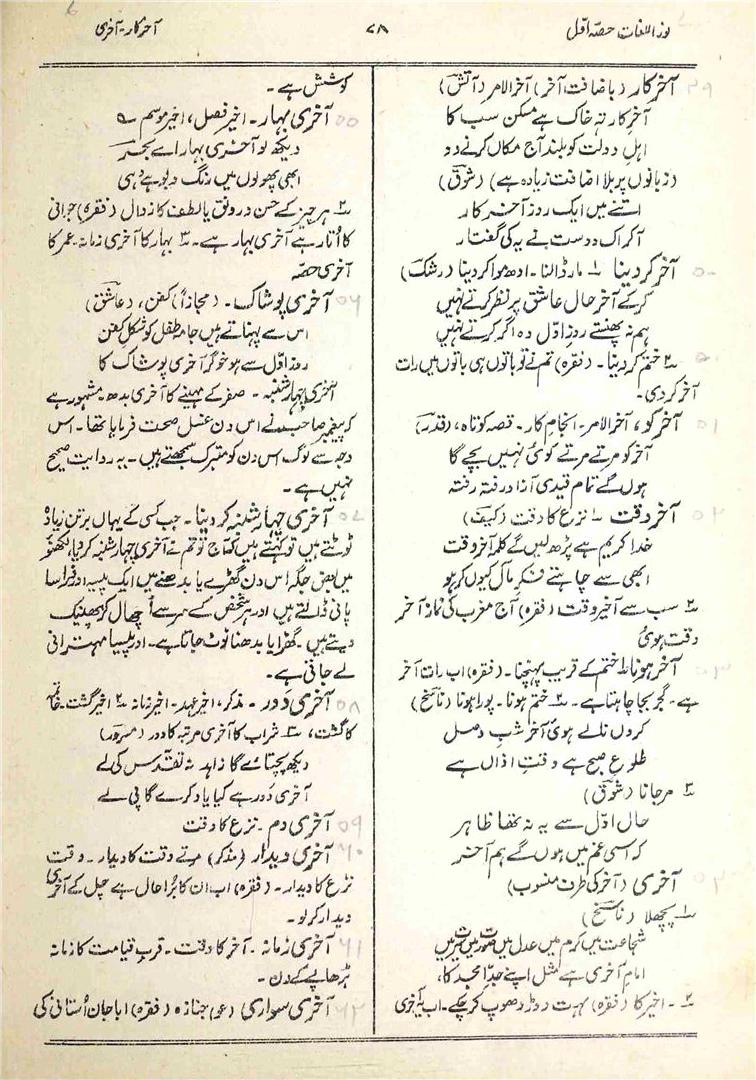 نور اللغات حصہ اوّل
۷۸
آخر کار ۔ آخری
آخر کار (باضافت آخر) آخر الامر (آتش)
آخر کار تہ خاک ہے مسکن سب کا
اہلِ دولت کو بلند آج مکاں کرنے دو
(زبانوں پر بلا اضافت زیادہ ہے) (شوق)
اتنے میں ایک روز آخر کار
آ کر اک دوست نے یہ کی گفتار
آخر کر دینا ۱؎ مار ڈالنا۔ ادھ موا کر دینا (رشک)
کر کے آخر حال عاشق پر نظر کرتے نہیں
ہم نہ پھنستے روز اوّل وہ اگر کرتے نہیں
۲؎ ختم کر دینا۔ (فقرہ) تم نے تو باتوں ہی باتوں میں رات
آخر کر دی۔
آخر کو، آخر الامر۔ انجام کار۔ قصہ کوتاہ، (قدر)
آخر کو مرتے مرتے کوئی نہیں بچے گا
ہوں گے تمام قیدی آزاد رفتہ رفتہ
آخر وقت ۱؎ نزع کا وقت (کیف)
خدا کریم ہے پڑھ لیں گے کلمہ آخر وقت
ابھی سے چاہتے فکر مآل کیوں کر ہو
۲؎ سب سے آخیر وقت (فقرہ) آج مغرب کی نماز آخر
وقت ہوئی
آخر ہونا ۱؎ ختم کے قریب پہنچنا۔ (فقرہ) اب رات آخر
ہے۔ گجر بجا چاہتا ہے۔ ۲؎ ختم ہونا۔ پورا ہونا (ناسخ)
کروں نالے ہوئی آخر شبِ وصل
طلوعِ صبح ہے وقتِ اذاں ہے
۳؎ مر جانا (شوق)
حال اوّل سے یہ نہ تھا ظاہر
کہ اسی غم میں ہوں گے ہم آخر
آخری (آخر کی طرف منسوب)
۱؎ پچھلا (ناسخ)
شجاعت میں کرم میں عدل میں صورت میں سیرت میں
امامِ آخری ہے مثل اپنے جدِّ امجد کا،
۲؎۔ اخیر کا (فقرہ) بہت دوڑ دھوپ کر چکے۔ اب یہ آخری
کوشش ہے۔
آخری بہار۔ اخیر فصل، اخیر موسم ؎
دیکھ لو آخری بہار اے بحر
ابھی پھولوں میں رنگ و بو ہے نہی
۲؎ ہر چیز کے حسن و رونق یا لطف کا زوال (فقرہ) جوانی
کا اُتار ہے آخری بہار ہے۔ ۳؎ بہار کا آخری زمانہ۔ عمر کا
آخری حصّہ
آخری پوشاک۔ (مجازاً) کفن، (عاشق)
اس سے پہناتے ہیں جامہ طفل کو شکل کفن
روز اوّل سے ہو خوگر آخری پوشاک کا
آخری چہار شنبہ۔ صفر کے مہینے کا آخری بدھ۔ مشہور ہے
کہ پیغمبر صاحب نے اس دن غسل صحت فرمایا تھا۔ اس
وجہ سے لوگ اس دن کو متبرک سمجھتے ہیں۔ یہ روایت صحیح
نہیں ہے۔
آخری چہار شنبہ کر دینا۔ جب کسی کے یہاں برتن زیادہ
ٹوٹتے ہیں تو کہتے ہیں کہ آج تو تم نے آخری چہار شنبہ کر دیا، لکھنؤ
میں بعض جگہ اس دن گھڑے یا بدھنے میں ایک پیسہ اور ذرا سا
پانی ڈالتے ہیں اور ہر شخص کے سر سے اُچھال کر پھینک
دیتے ہیں۔ گھڑا یا بدھنا ٹوٹ جاتا ہے۔ اور پیسا مہترانی
لے جاتی ہے۔
آخری دَور۔ مذکر، اخیر عہد۔ اخیر زمانہ ۲؎ اخیر گشت۔ خاتمہ
کا گشت، ۳؎ شراب کا آخری مرتبہ کا دور (مسرور)
دیکھ پچتائے گا زاہد نہ تقدس کی لے
آخری دَور ہے کیا یاد کرے گا پی لے
آخری دم۔ نزع کا وقت
آخری دیدار (مذکر) مرتے وقت کا دیدار۔ وقت
نزع کا دیدار۔ (فقرہ) اب ان کا بُرا حال ہے چل کے آخری
دیدار کر لو۔
آخری زمانہ۔ آخر کا وقت۔ قربِ قیامت کا زمانہ
بڑھاپے کے دن۔
آخری سواری (عو) جنازہ (فقرہ) ابا جان اُستانی کی